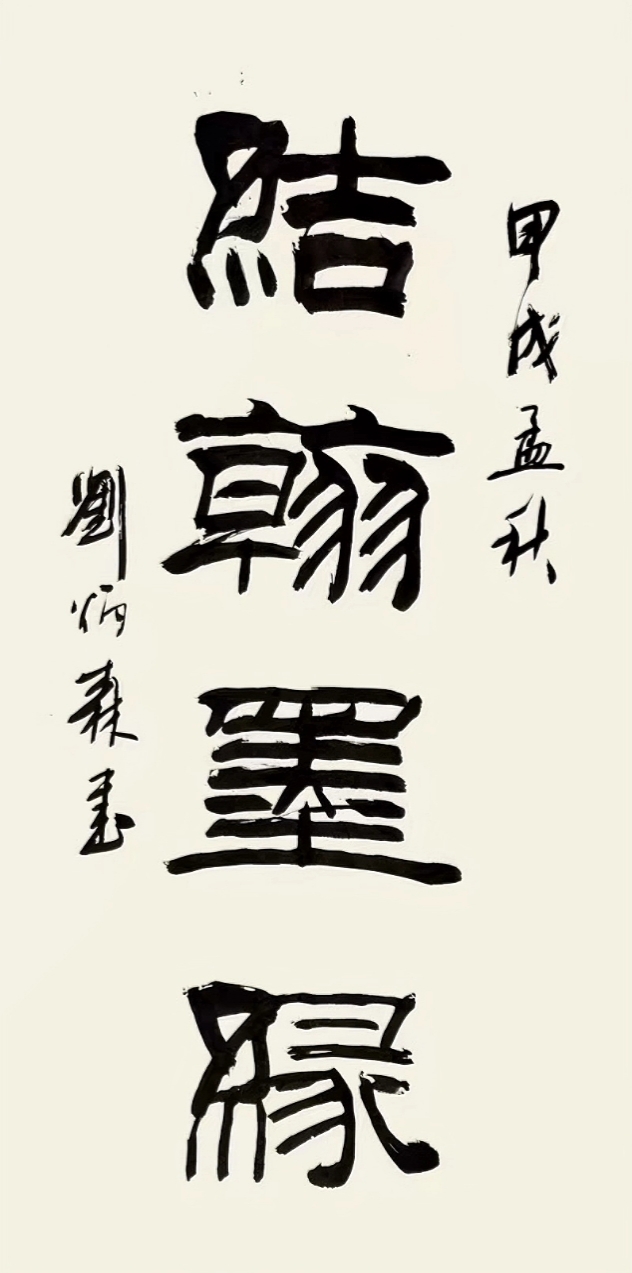 甲戌孟秋
結翰墨緣
劉炳森書